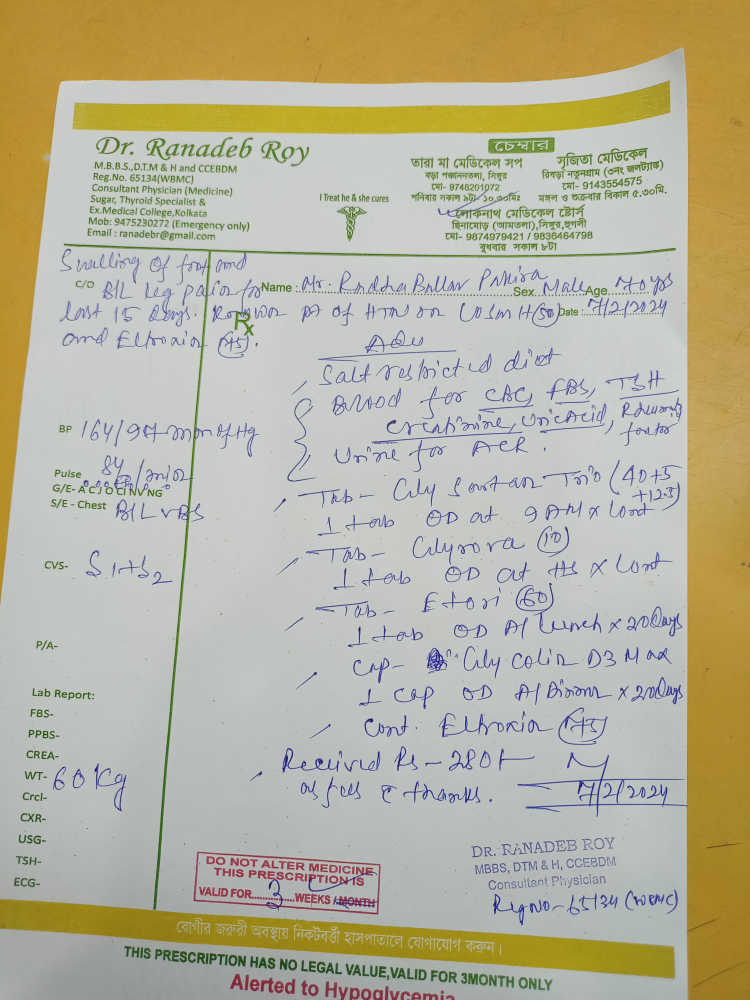 Dr. Ranadeb Roy
M.B.B.S.,D.T.M & H and CCEBDM
Reg.No. 65134(WBMC)
Consultant Physician (Medicine)
Sugar, Thyroid Specialist &
Ex.Medical College,Kolkata
Mob: 9475230272 (Emergency only)
Email : ranadebr@gmail.com
I Treat he & she cures
চেম্বার
তারা মা মেডিকেল সপ
বড়া পঞ্চাননতলা, সিঙ্গুর
মো- 9748201072
শনিবার সকাল ৯টা- ১০.৩০মিঃ
সৃজিতা মেডিকেল
রিষড়া নতুনগ্রাম (৩নং জলট্যাঙ্ক)
মো- 9143554575
মঙ্গল ও শুক্রবার বিকাল ৫.৩০মি.
লোকনাথ মেডিকেল ষ্টোর্স
ছিনামোড় (আমতলা),সিঙ্গুর,হুগলী
মো- 9874979421 / 9836464798
বুধবার সকাল ৮টা
Swelling of foot and
C/O B/L leg pain for
last 15 days. Known pt of HTN on Cosm H (50)
and Eltroxin (75).
Name : Mr. Radha Ballav Pakira
Sex Male Age 70 yrs
Date : 7/2/2024
Rx
Adv
Salt restricted diet
Blood for CBC, FBS, TSH
Creatinine, Uric Acid, Rheumatoid
factor
Urine for ACR.
BP 164/97 mm of Hg
Pulse 84/min
G/E- A C J O CI NV NG
S/E - Chest B/L VBS
CVS- S1+S2
P/A-
Tab- Cily Sartan Trio (40+5
+12.5)
1 tab OD at 9 AM x Cont
Tab- Cilyrova (10)
1 tab OD at HS x Cont
Tab- Etori (60)
1 tab OD A/ Lunch x 20 days
Cap- Cily Colin D3 Max
1 cap OD A/ Dinner x 20 days
Cont. Eltroxin (75)
Received Rs - 280/-
as fees c thanks.
7/2/2024
Lab Report:
FBS-
PPBS-
CREA-
WT- 60 Kg
Crcl-
CXR-
USG-
TSH-
ECG-
DO NOT ALTER MEDICINE
THIS PRESCRIPTION IS
VALID FOR 3 WEEKS / MONTH
DR. RANADEB ROY
MBBS, DTM & H, CCEBDM
Consultant Physician
Reg No- 65134 (WBMC)
রোগীর জরুরী অবস্থায় নিকটবর্ত্তী হাসপাতালে যোগাযোগ করুন।
THIS PRESCRIPTION HAS NO LEGAL VALUE,VALID FOR 3MONTH ONLY
Alerted to Hypoglycemia